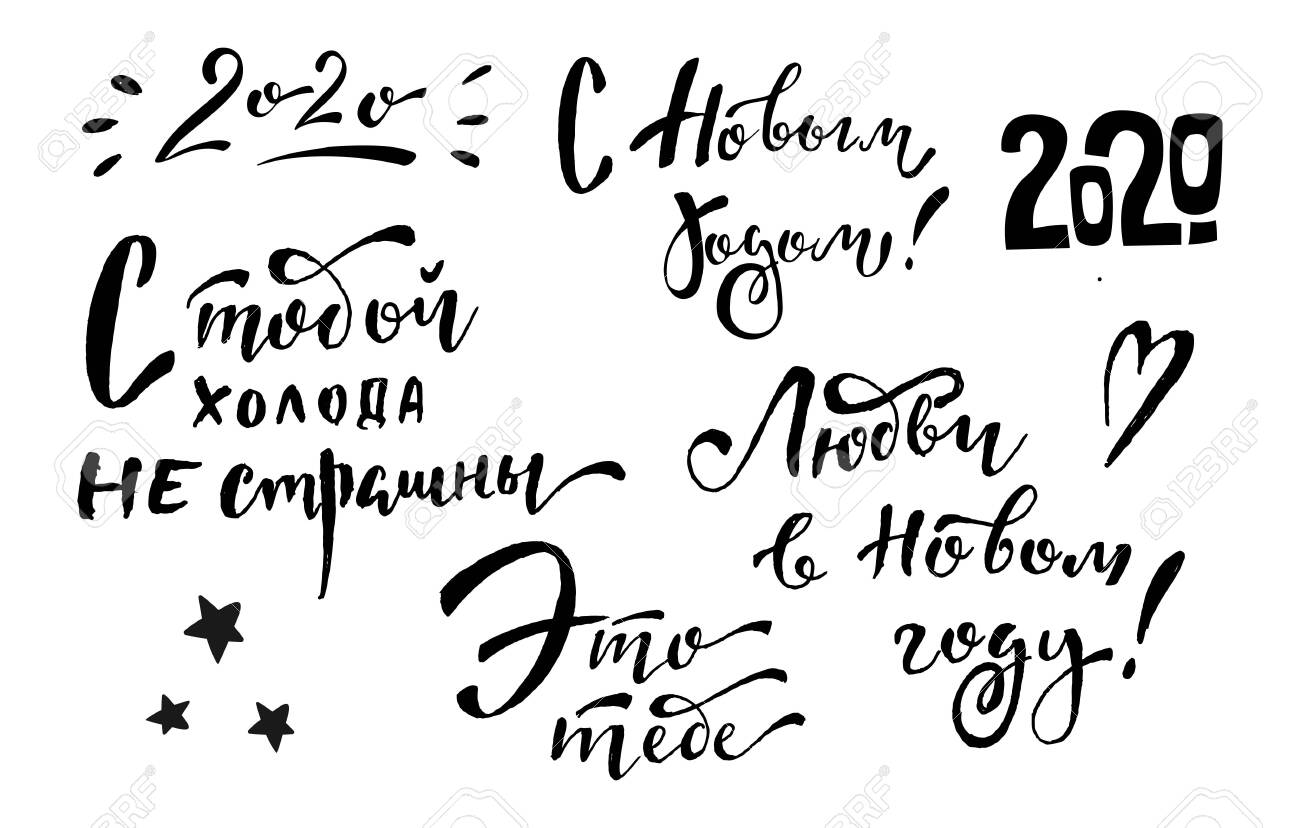 2020
С Новым
Годом!
2020
С тобой
холода
не страшны
Любви
в Новом
году!
Это
тебе
123RF